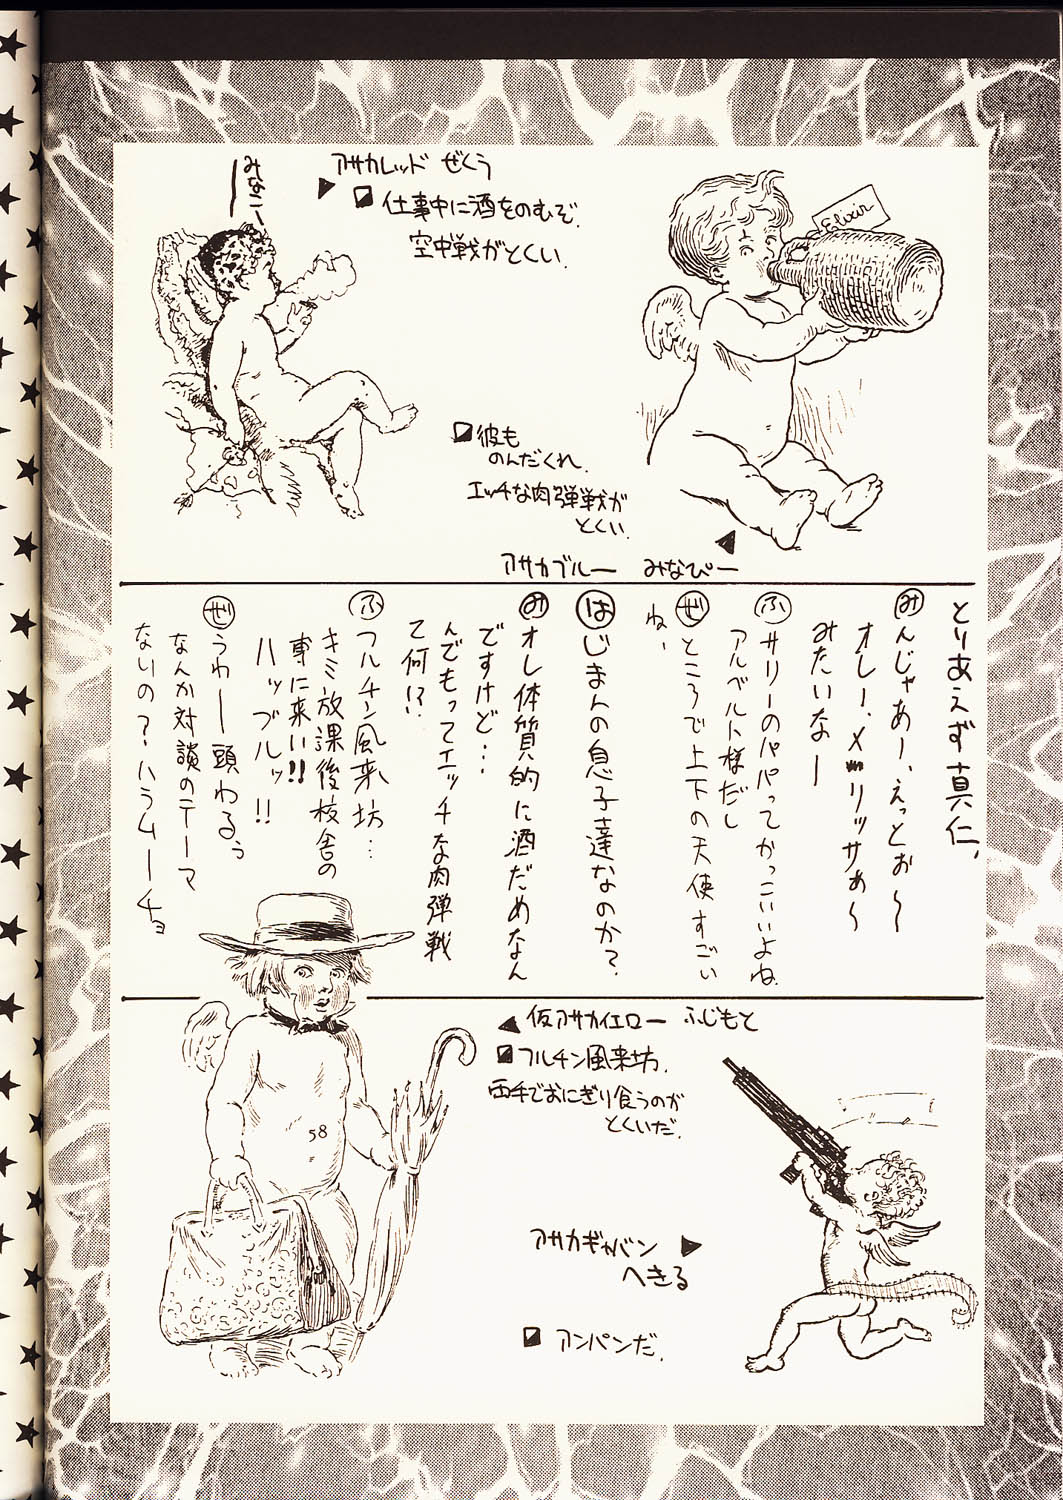 みなこー
アサカレッド ぜくう
仕事中に酒をのむぞ.
空中戦がとくい.
Elixir
彼も
のんだくれ.
エッチな肉弾戦が
とくい.
アサカブルー みなぴー
とりあえず真仁、
みんじゃあー、えっとぉ〜
オレー、メリッサぁ〜
みたいなー
ふサリーのパパってかっこいいよね.
アルベルト様だし
ぜところで上下の天使すごい
ね、
はじまんの息子達なのか?
みオレ体質的に酒だめなん
ですけど…
んでもってエッチな肉弾戦
て何!?
ふフルチン風来坊…
キミ放課後校舎の
裏に来い!!
ハッブルッ!!
ぜうわー頭わるぅ
なんか対談のテーマ
ないの?ハラムーチョ
仮アサカイエロー ふじもと
フルチン風来坊.
両手でおにぎり食うのが
とくいだ.
58
アサカギャバン
へきる
アンパンだ.